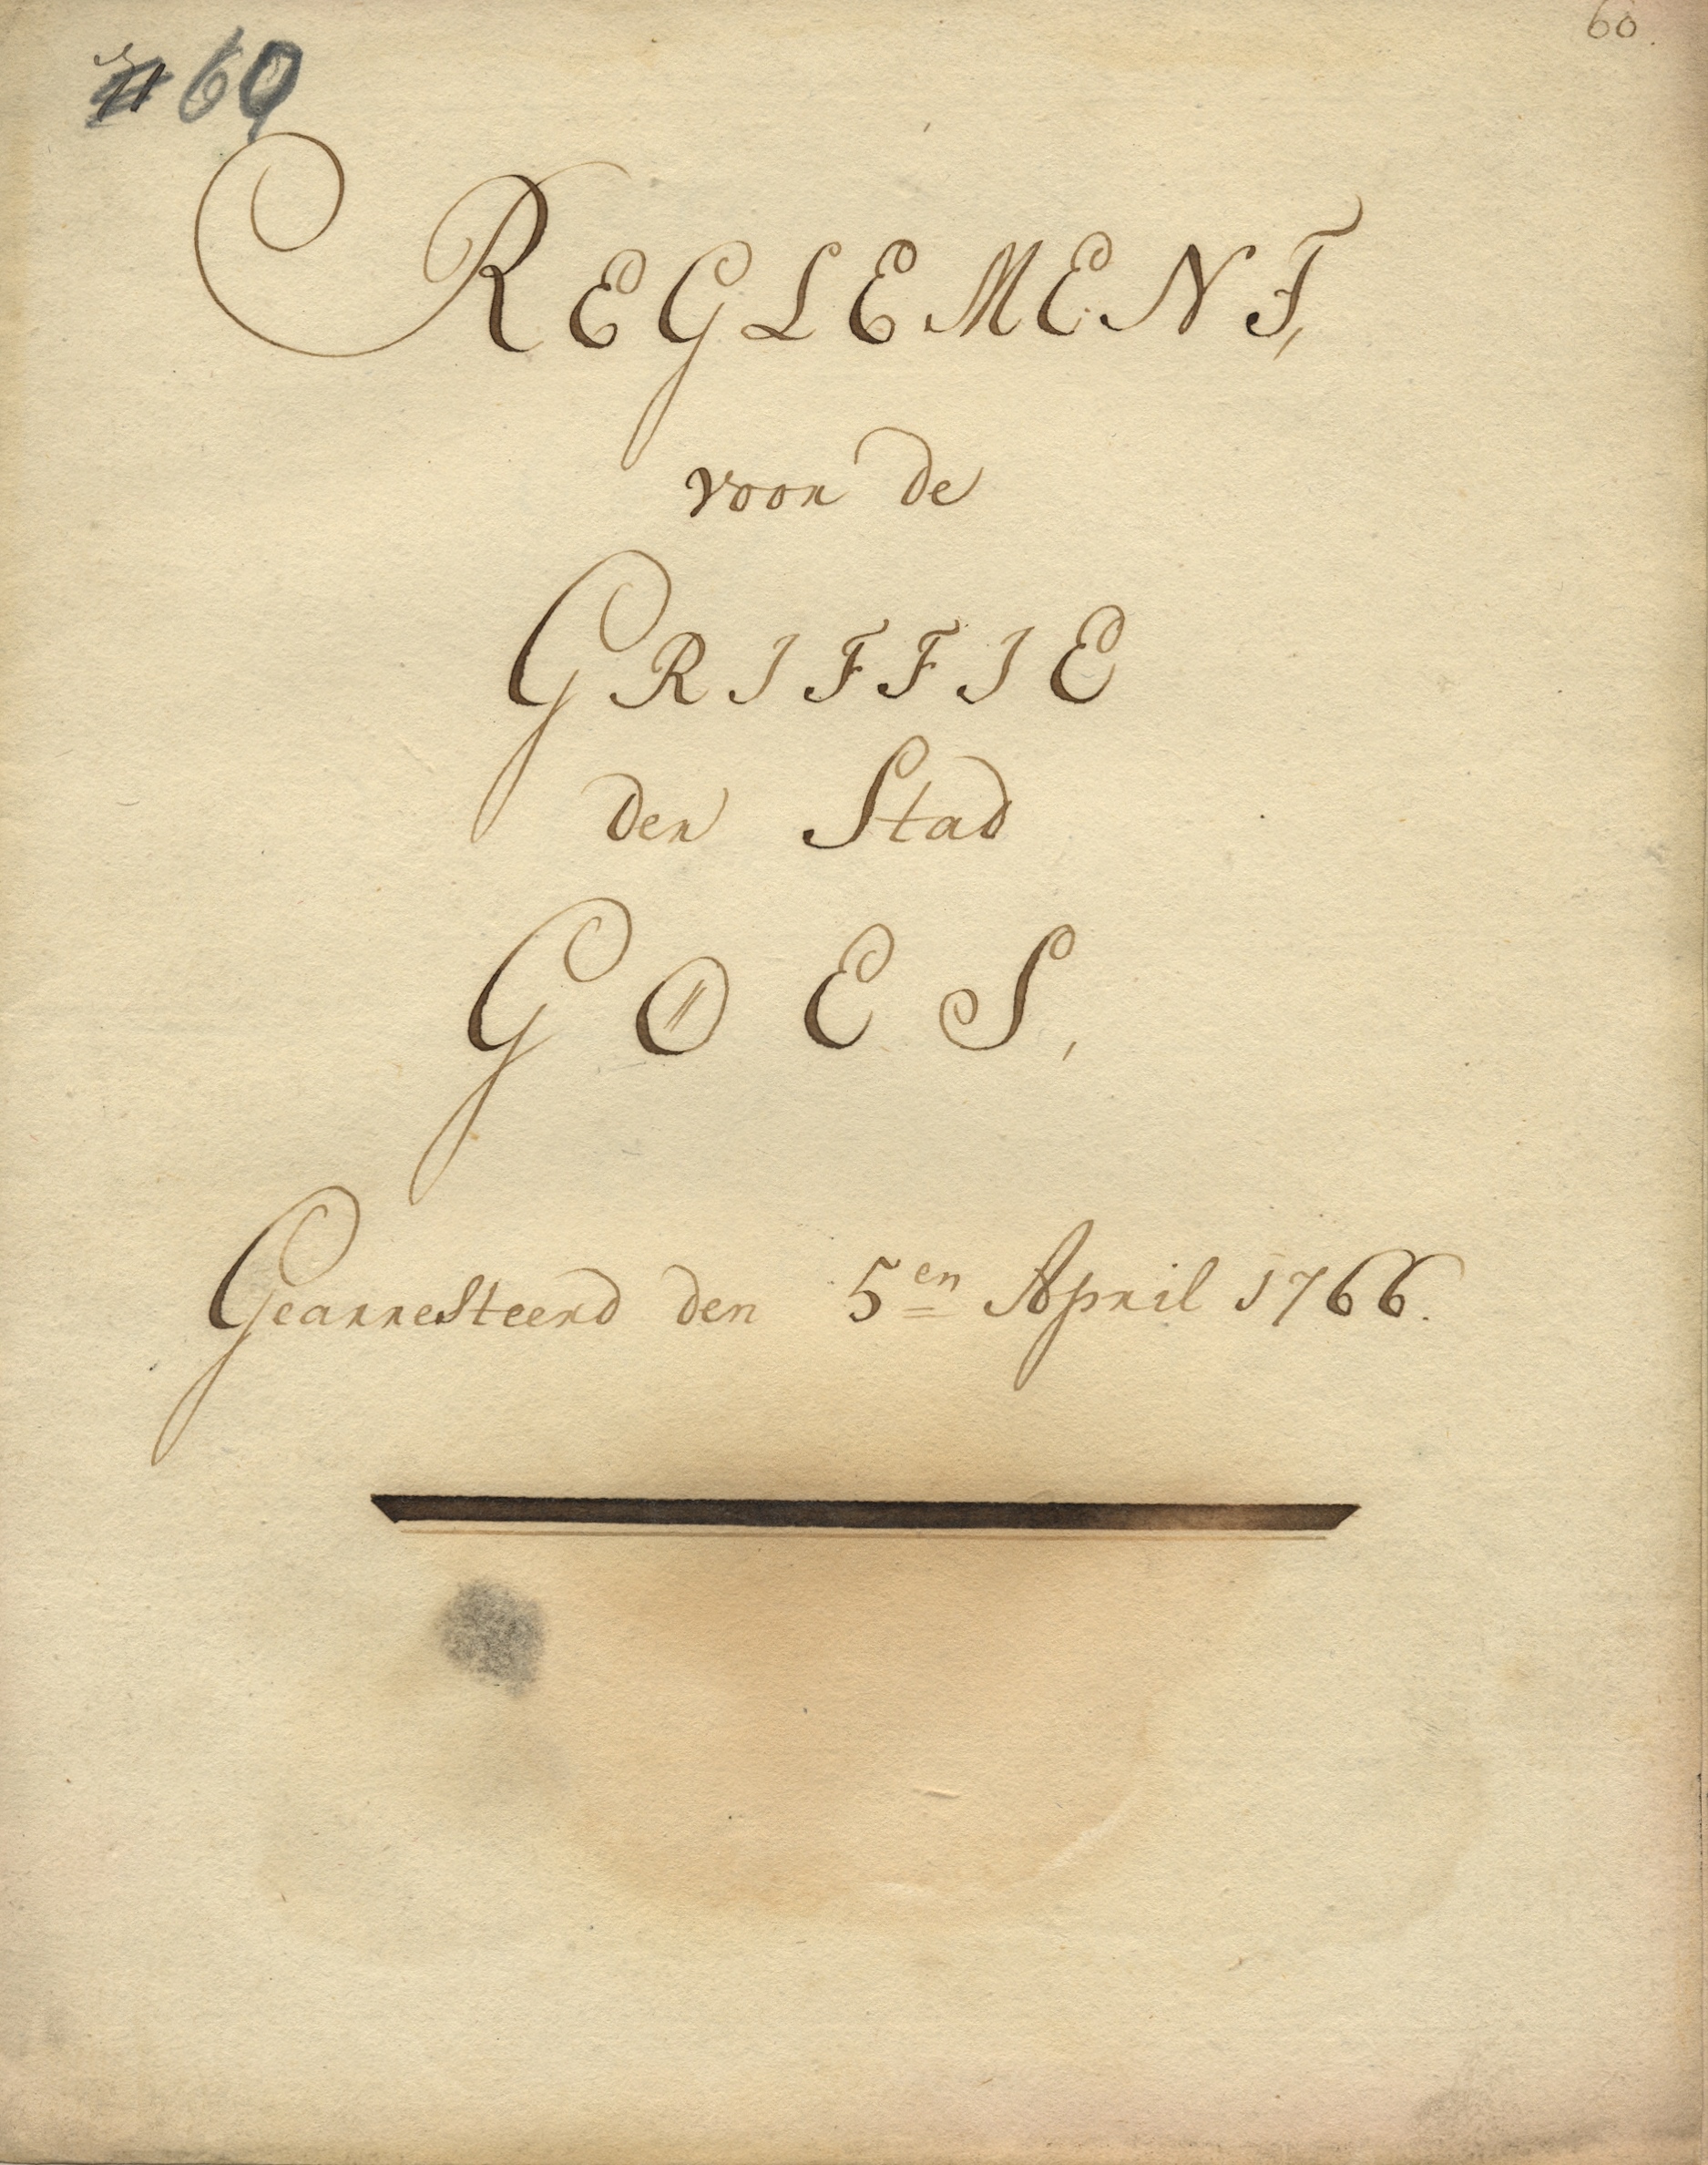 60.
# 69
REGLEMENT,
voor de
GRIFFIE
der Stad
GOES,
Gearresteerd den 5en April 1766.